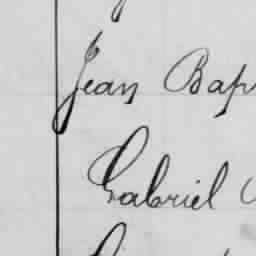 Jean Bap
Gabriel